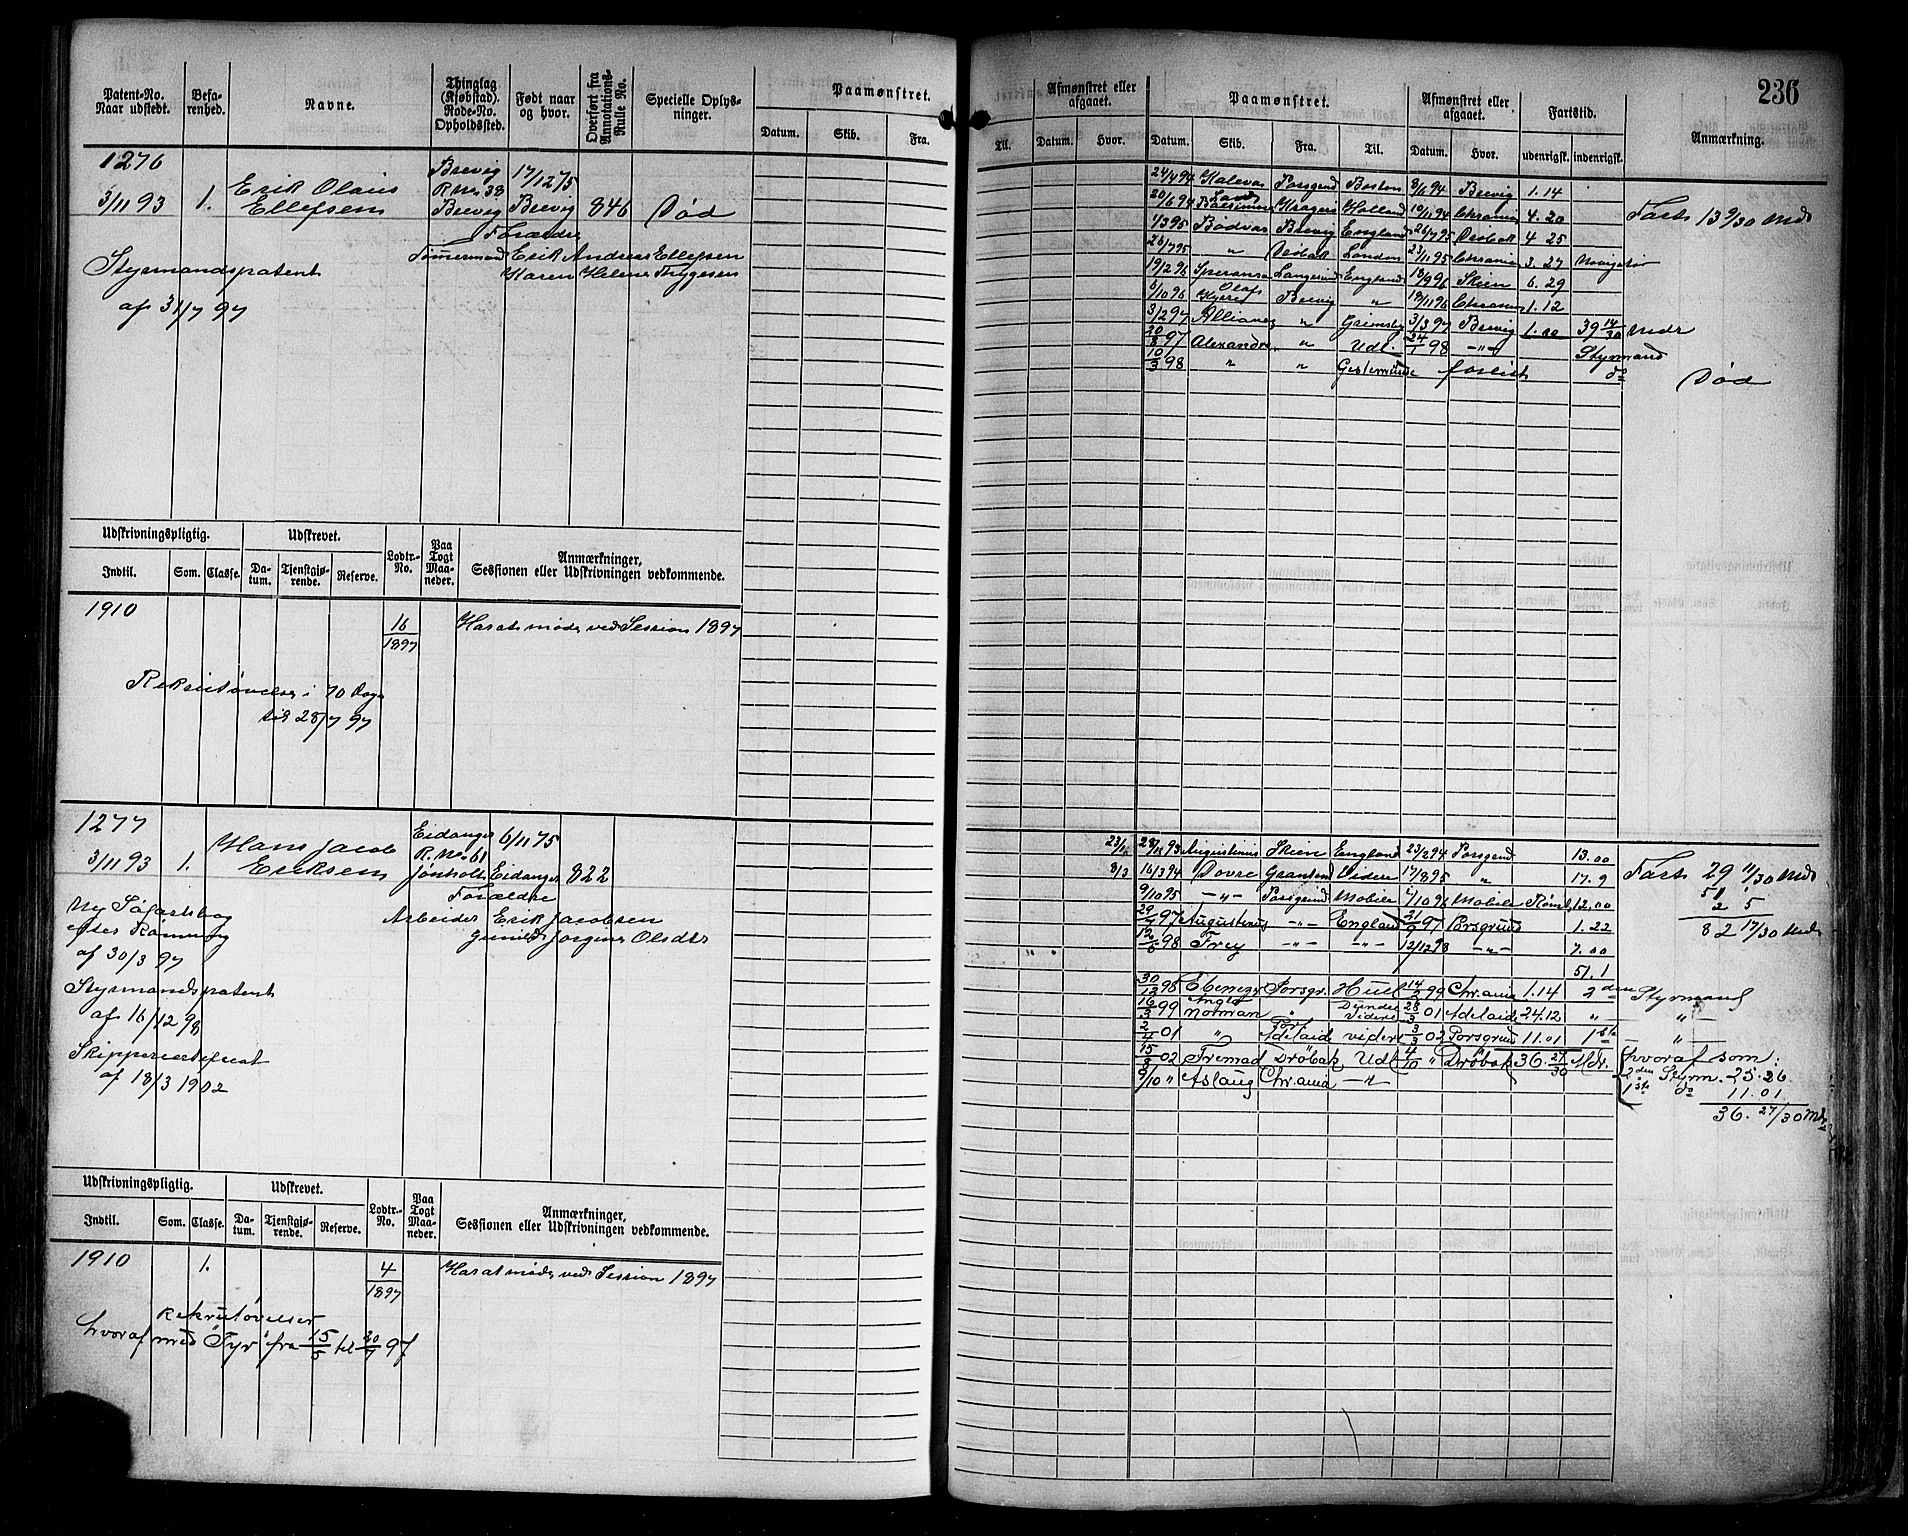 236
Patent-No. Naar udstedt.
Befarenhed.
Navne.
Thinglag (Kjøbstad). Rode-No. Opholdssted.
Født naar og hvor.
Overført fra Annotations-Rulle No.
Specielle Oplysninger.
Paamønstret.
Datum. Skib. Fra.
Til.
Afmønstret eller afgaaet.
Datum. Hvor.
Paamønstret.
Datum. Skib. Fra. Til.
Afmønstret eller afgaaet.
Datum. Hvor.
Fartstid.
udenrigsk. indenrigsk.
Anmærkning.
1276
3/11 93 1. Erik Olaus Ellefsen
Brevig R No 38 Brevig
17/12 75 Brevig
846 Død
Forældre
Tømmermand Erik Andreas Ellefsen
Karen Helene Thygesen
Styrmandspatent
af 31/7 97
24/4 94 Kalevas Porsgrnd Boston 8/6 94 Brevig 1. 14
Kragerø Holland 19/11 94 Chrania 4. 20 Fart 13 9/30 Mdr
1/3 95 Bødvar Brevig England 26/7 95 Drøbak 4 25
26/7 95 " Drøbak London 23/11 95 Chrania 3. 27 Navigatør
19/2 96 Speransa Langesund England 18/9 96 Skien 6. 29
6/10 96 Olaf Kyrre Brevig " 19/11 96 Chrania 1. 12
3/2 97 Alliance " Grimsby 3/3 97 Brevig 39 14/30 Mdr
20/8 97 Alexandra " Udl. 24/1 98 -"- Styrmand
10/3 98 " " Gestemünde forlist do Død
Udskrivningspligtig.
Udskrevet.
Lodtr.-No.
Paa Togt Maaneder.
Anmærkninger, Sessionen eller Udskrivningen vedkommende.
Indtil. Som. Classe. Datum. Tjenstgjørende. Reserve.
1910 16/1897 Har at møde ved Session 1897
Rekrutøvelse i 70 Dage
til 28/7 97
1277
3/11 93 1. Hans Jacob Eriksen
Eidanger R. No 61 Jønholt
6/11 75 Eidanger
822
Forældre
Arbeider Erik Jacobsen
Gunild Jørgine Olsdtr
Ny Søfartsbog
efter Rømning
af 30/3 97
Styrmandspatent
af 16/12 98
Skippercertificat
af 18/3 1902
Augustinus Skien England 23/2 94 Porsgrnd 13.00
8/3 16/3 94 Dovre Grantond Videre 17/8 95 " 17.9
Fart 29 11/30 Mdr
51 1
2 5
82 17/30 Mdr
9/10 95 -"- Porsgrund Mobile 6/10 96 Mobile Rømt 12,00
97 Augustinus -"- England 97 Porsgrund 1.22
98 Frey -"- -"- 12/12 98 -"- 7.00
51.1
30/12 98 Ebenezer Porsgr. Hull 14/2 99 Chr.ania 1.14 2den Styrmand
16/3 99 Anglo Norman " Dundee Videre 28/3 01 Adelaide 24.12 " "
2/4 01 " Port Adelaide videre 3/3 02 Porsgrund 11.01 1ste "
15/8 02 Fremad Drøbak Udl 4/10 " Drøbak 36. 27/30 Mdr.
9/10 " Aslaug Chr.ania -"-
hvoraf som:
2den Styrm. 25.26
1ste do 11.01
36. 27/30 Mdr
Udskrivningspligtig.
Udskrevet.
Lodtr.-No.
Paa Togt Maaneder.
Anmærkninger, Sessionen eller Udskrivningen vedkommende.
Indtil. Som. Classe. Datum. Tjenstgjørende. Reserve.
1910 1. 4/1897 Har at møde ved Session 1897
Rekrutøvelser
hvoraf med "Tyr" fra 15/5 til 20/7 97